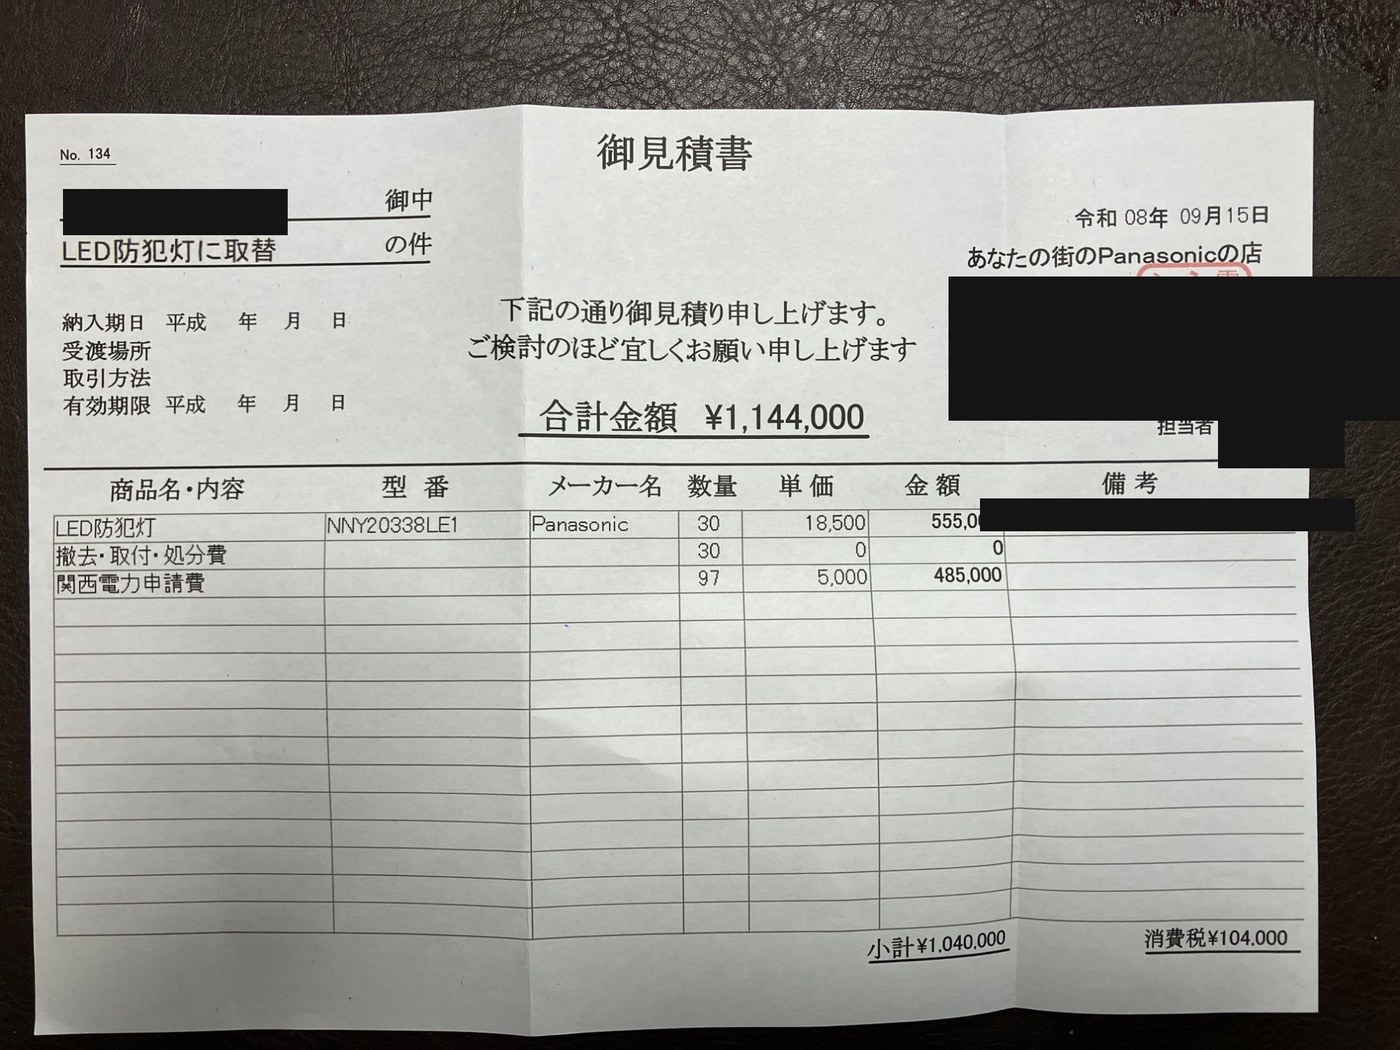 No. 134
御見積書
御中
LED防犯灯に取替 の件
令和 08年 09月15日
あなたの街のPanasonicの店
納入期日 平成 年 月 日
受渡場所
取引方法
有効期限 平成 年 月 日
下記の通り御見積り申し上げます。
ご検討のほど宜しくお願い申し上げます
合計金額 ¥1,144,000
担当者
商品名・内容 型番 メーカー名 数量 単価 金額 備考
LED防犯灯 NNY20338LE1 Panasonic 30 18,500 555,0
撤去・取付・処分費 30 0 0
関西電力申請費 97 5,000 485,000
小計¥1,040,000 消費税¥104,000